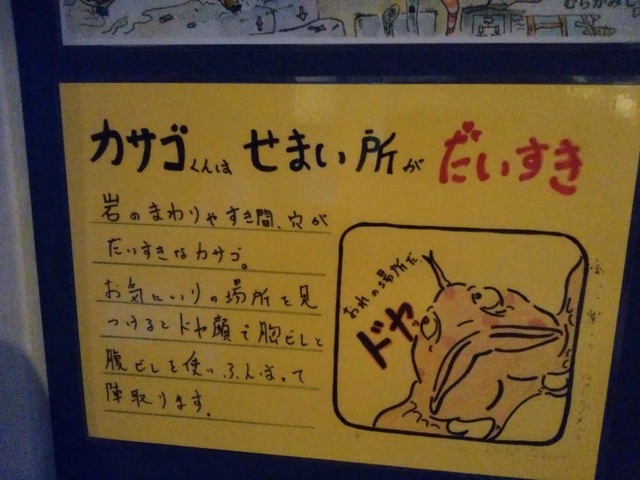 むらかみ
カサゴくんは せまい所が だいすき
岩のまわりやすき間、穴が
だいすきなカサゴ。
お気にいりの場所を見
つけるとドヤ顔で胸ビレと
腹ビレを使い、ふんばって
陣取ります。
おれの場所だ
ドヤ